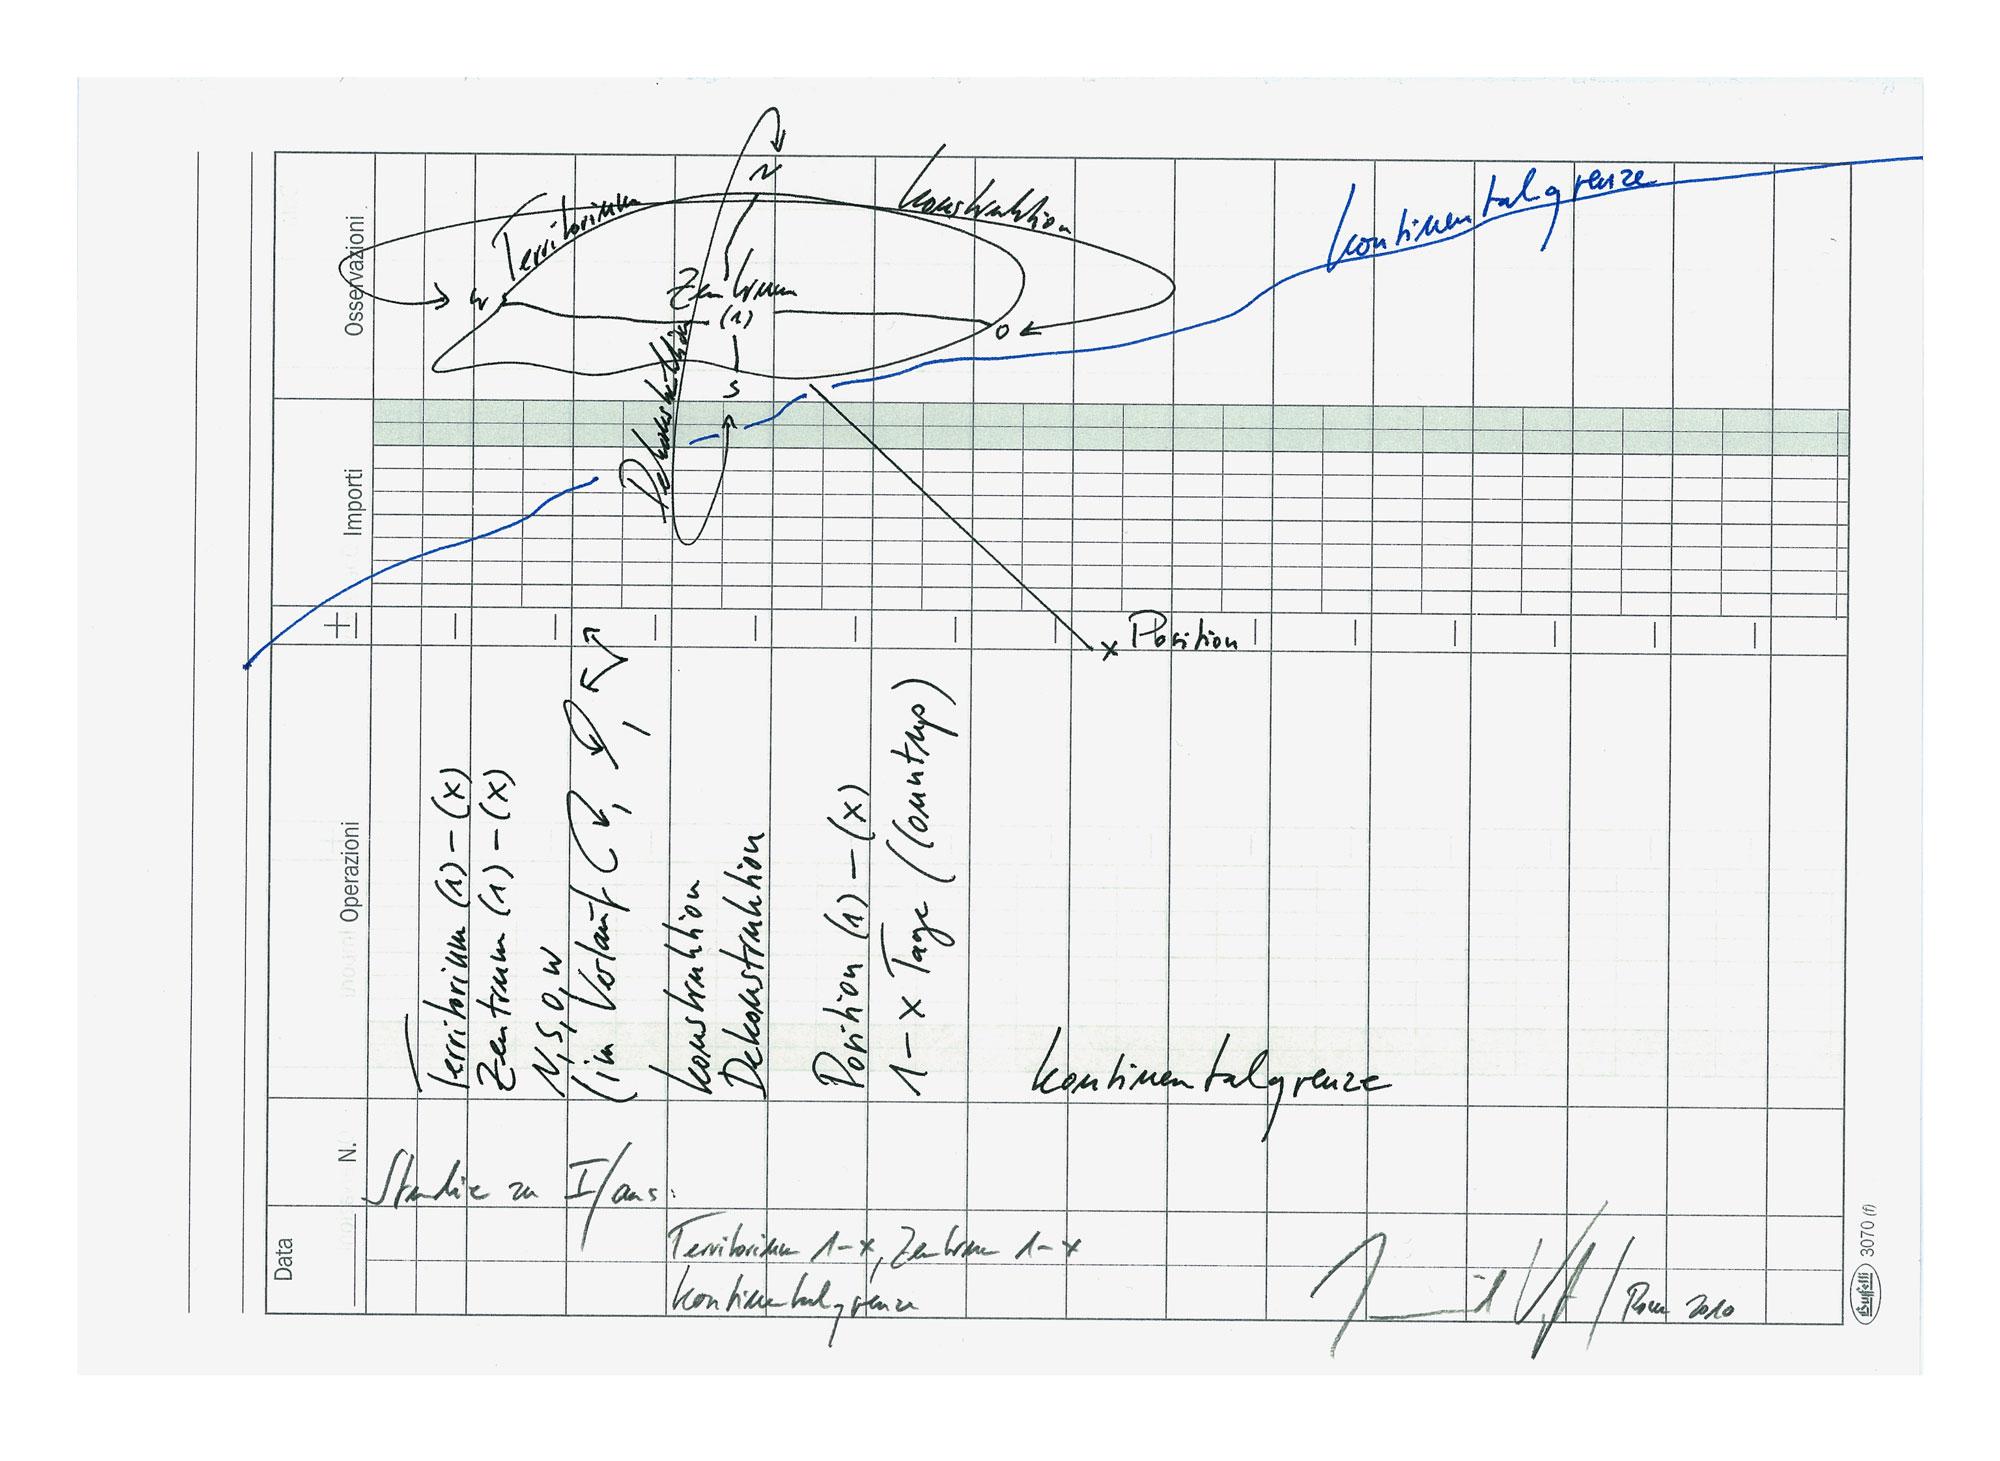 N
Territorium
Konstruktion
Kontinentalgrenze
Zentrum
(1)
W
O
S
Dekonstruktion
x Position
Osservazioni
Importi
+
Operazioni
N.
Data
Territorium (1) – (x)
Zentrum (1) – (x)
N, S, O, W
(im Verlauf
Konstruktion
Dekonstruktion
Position (1) – (x)
1 – x Tage (Countup)
Kontinentalgrenze
Studie zu I/aus:
Territorium 1-x, Zentrum 1-x
Kontinentalgrenze
Rom 2010
Buffetti 3070 (f)